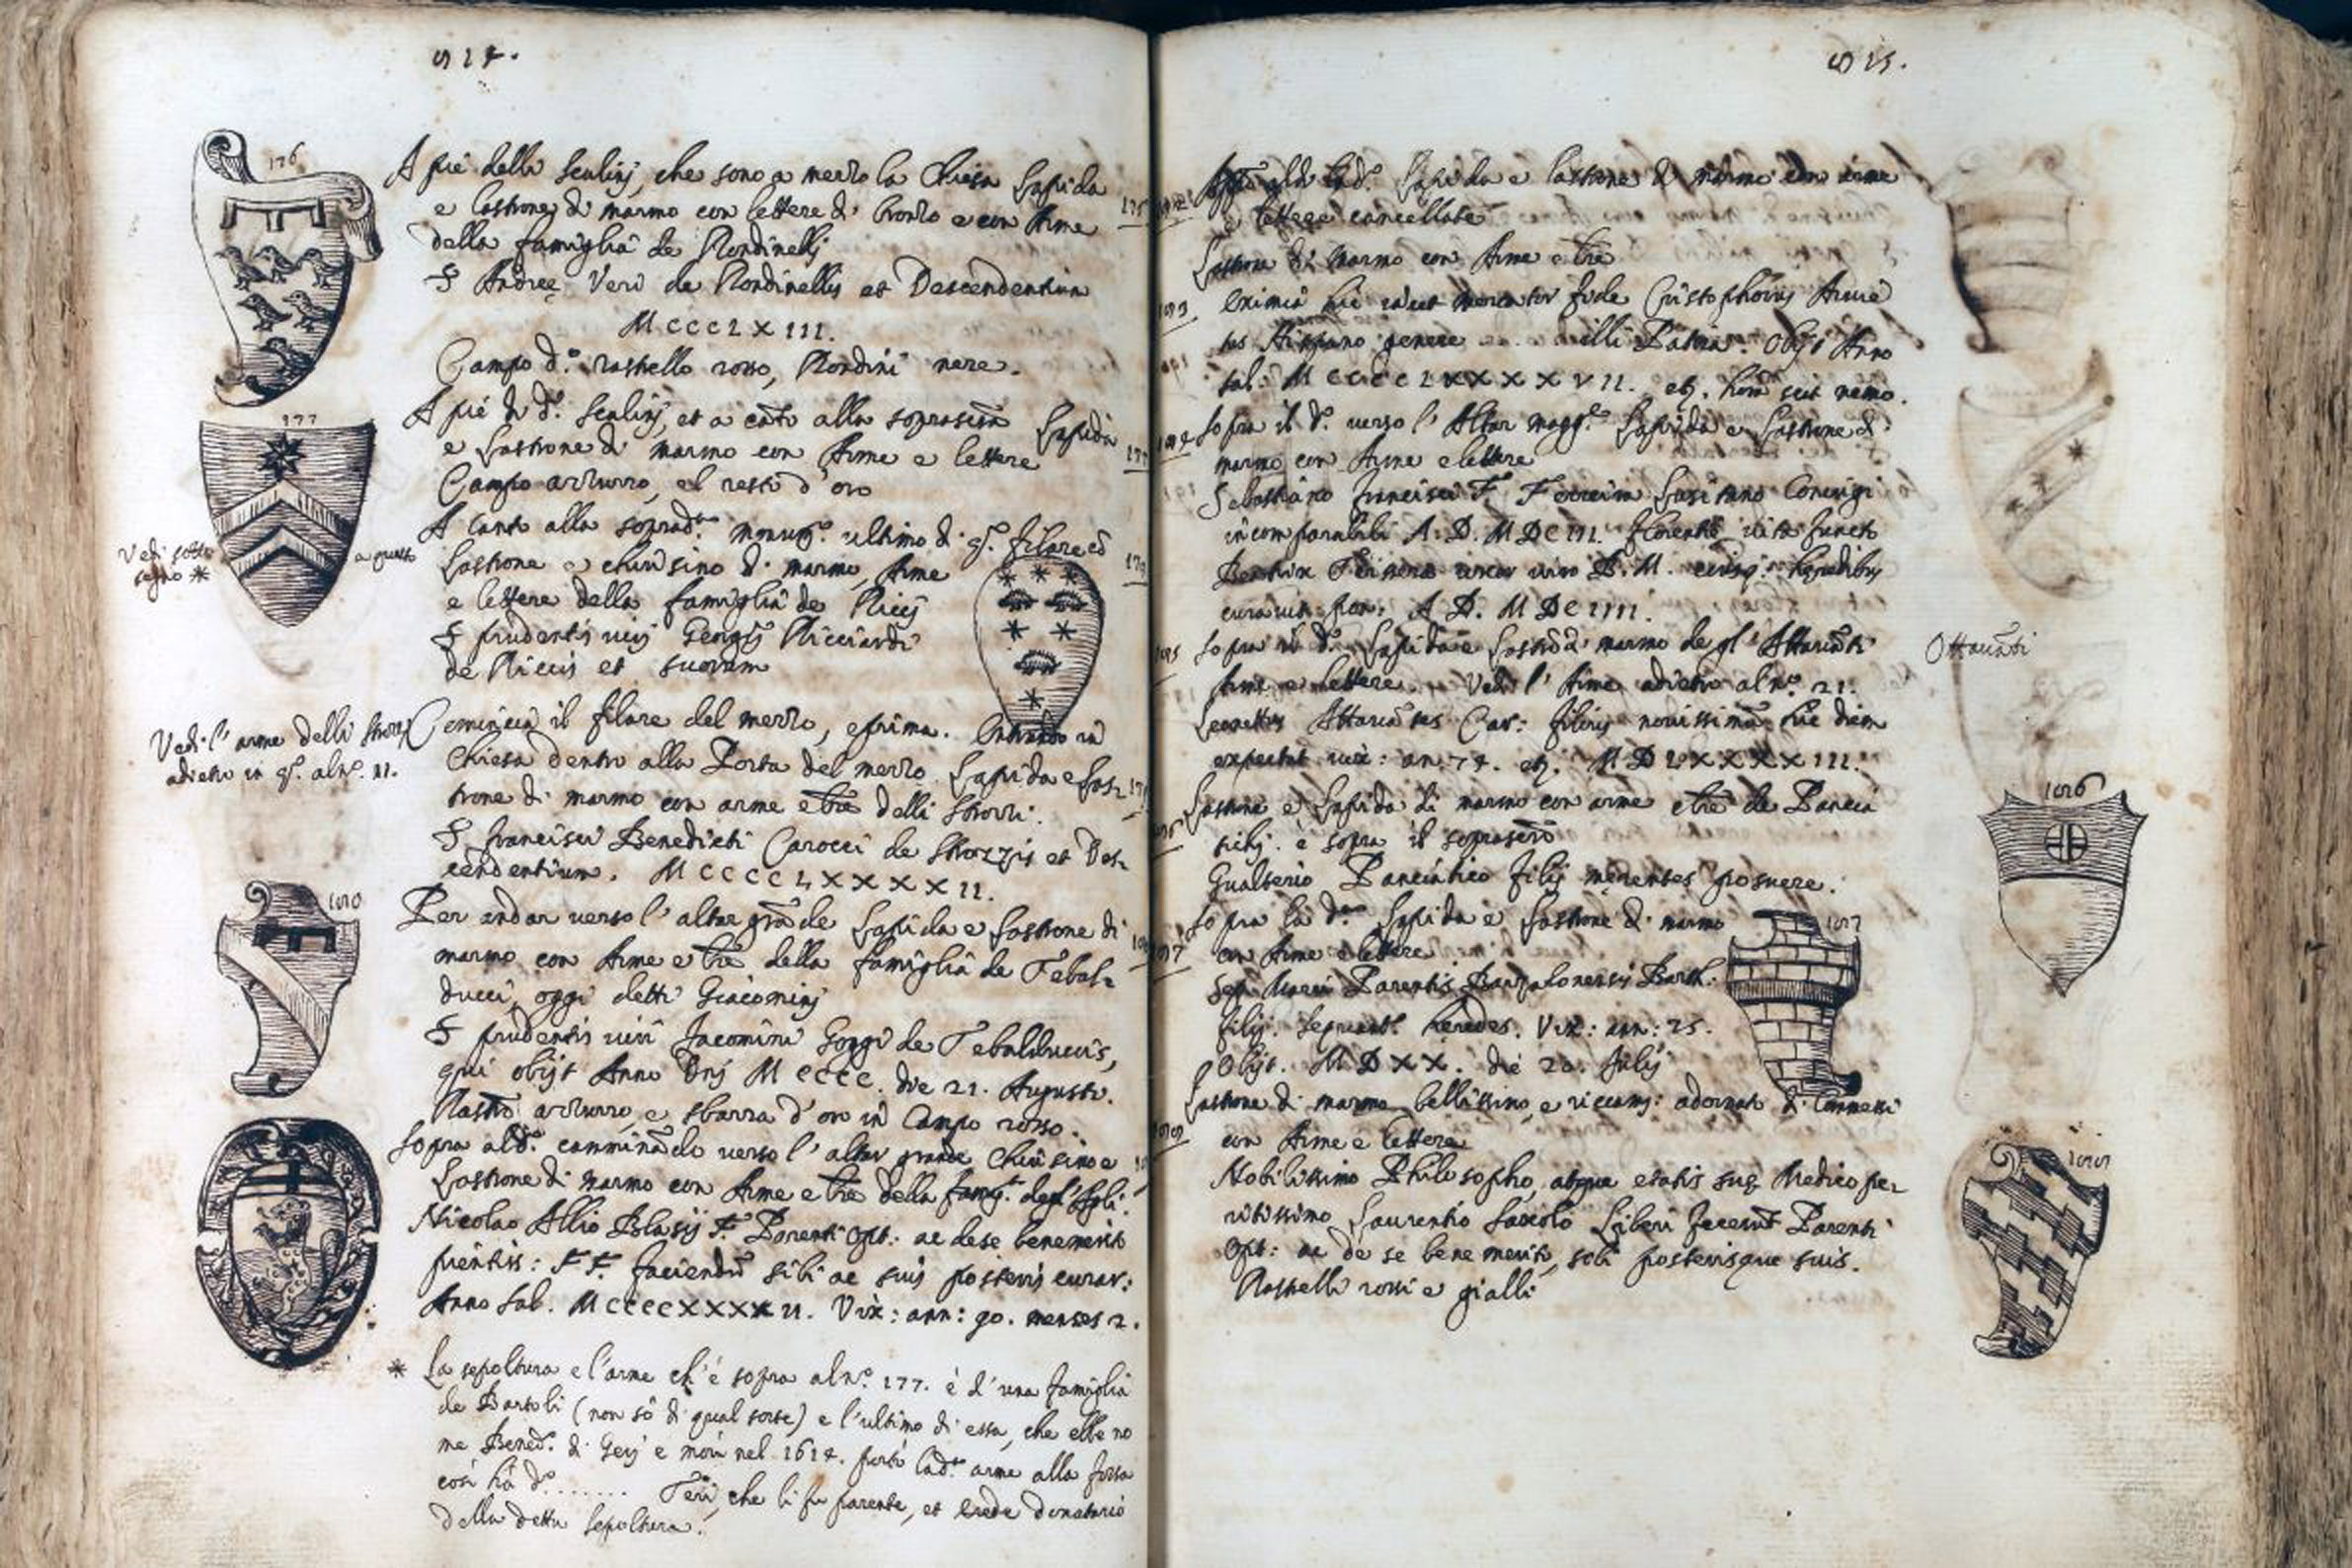 176
A piè delli scalini, che sono a mezzo la Chiesa Lapida
e lastrone di marmo con lettere di bronzo e con Arme
della famiglia de Rondinelli
S Andree Veri de Rondinellis et Descendentium
MCCCLXIII.
Campo d.º rastello rosso, Rondini nere.
177
A piè di d.i scalini, et a canto alla soprascritta Lapida
e Lastrone di marmo con Arme e lettere
Campo azzurro, el resto d'oro
Vedi sotto
segno *
a questo
A canto alla soprad.ta ultimo di q.º filare ed
Lastrone e chiusino di marmo, Arme
e lettere della famiglia de Ricci
S prudentis viri Georgij Ricciardi
de Riccis et suorum
Vedi l'arme delli Strozzi
adietro in q.º al nº. 11.
Comincia il filare del mezzo, e prima. Entrando in
Chiesa dentro alla Porta del mezzo Lapida e Las-
trone di marmo con arme e lre delli Strozzi.
S Francisci Benedicti Carocci de Strozzis et Des-
cendentium. MCCCCLXXXXII.
180
Per andar verso l'altar grãde Lapida e Lastrone di
marmo con Arme e lre della famiglia de Tebal-
ducci, oggi detti Giacomini
S prudentis viri Jacomini Goggi de Tebalduccis,
qui obijt Anno Dnj MCCCC. die 21. Augusti.
Rastro azzurro, e sbarra d'oro in Campo rosso.
Sopra al d.º camminãdo verso l'altar grande Chiusino e
Lastrone di marmo con Arme e lre della famig.a degl'Agli.
Nicolao Allio Blasij F. Parenti opt: ac de se benemerito
pientiss: FF. faciendũ sibi ac suis posteris curav:
Anno Sal. MCCCCXXXXII. Vix: ann: 90. menses 2.
* La sepoltura e l'arme ch'è sopra al nº. 177. è d'una famiglia
de Bartoli (non sò di qual sorte) e l'ultimo di essa, che ebbe no
me Bened.º di Geri e morì nel 1614. portò la d.a arme alla fossa
così hà d.º ....... Teri, che li fu parente, et erede donatario
della detta sepoltura.
Lapida e lastrone di marmo con arme
e lettere cancellate
Lastrone di marmo con Arme e lre
Eximia hic iacet mercator fide Cristophorus
Hispano genere ... illi Patria. Obijt Anno
sal: MCCCCLXXXXVII. et. hora scit nemo.
Sopra il d.º verso l'Altar magg.e Lapida e Lastrone di
marmo con Arme e lettere
Sebastiano Francisci F. Ferreira Lusitano Coniugi
incomparabili A. D. MDCIII. Florentie vita functo
uxor viro B. M. eiusq. heredibus
curavit A D. MDCIIII.
Sopra il d.º Lapida e Lastrõ di marmo de gl'Attavãti
Arme e lettere. Vedi l'Arme adietro al nº. 21.
Ottavãti
Leonettus Attavãtes Cav: filius novissimã hic diem
expectat vix: an: 74. MDLXXXXIII.
Lastrone e Lapida di marmo con arme e lre de Pancia
tichi. è sopra il soprascrõ
Gualterio Panciatico filij merentes posuere.
Sopra la d.a Lapida e Lastrone di marmo
con Arme e lettere
Marci Parentis Barth.
filij. heredes. Vix: ann: 25.
Obijt. MDXX. die 20. Julij
Lastrone di marmo bellissimo, e riccam: adornato di
con Arme e lettere
Nobilissimo Philosopho, atque etatis sue Medico pe-
ritissimo Laurentio Liberi fecerũt Parenti
opt: ac de se bene merito, sibi posterisque suis.
Rastelli rossi e gialli